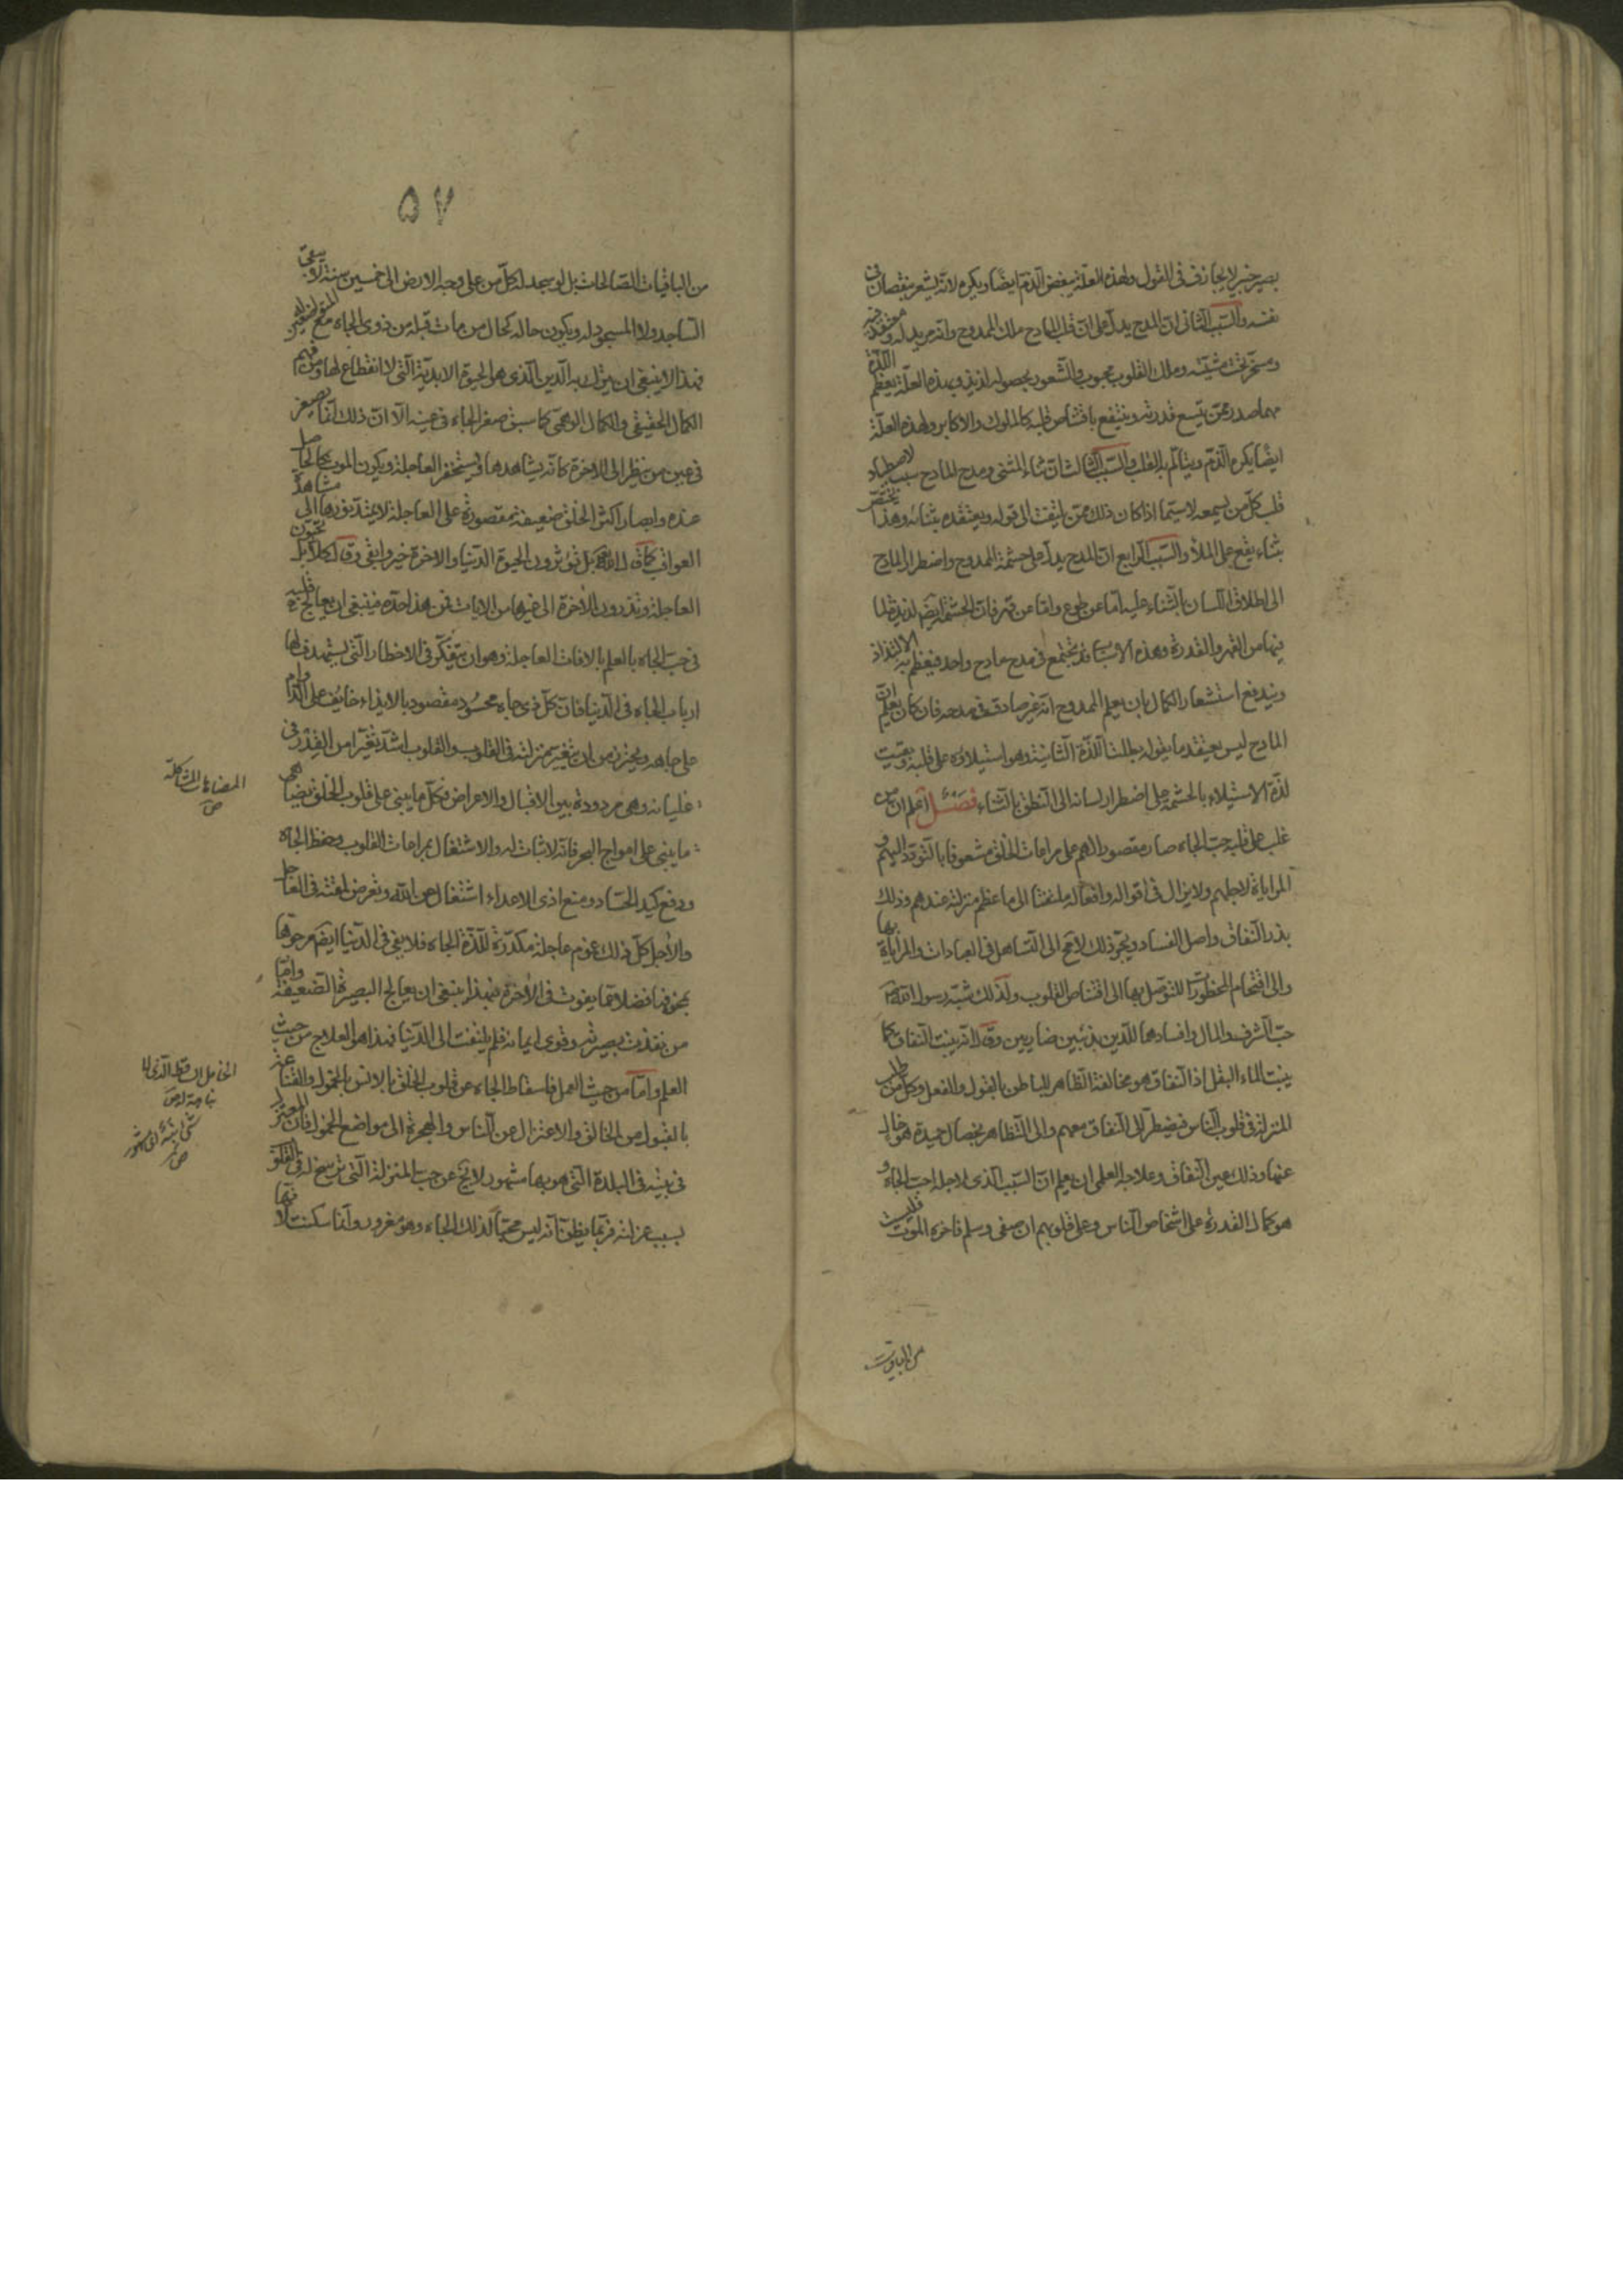 بصير خبير لا يجازف فى القول ولهذه العلة يبغض الذم ايضا ويكره لانه يشعر بنقصان
نفسه والسبب الثانى ان المدح يدل على ان قلب المادح ملك الممدوح وانه مريد له ومعتقد فيه
ومسخر تحت مشيته وملك القلوب محبوب والشعور بحصوله لذيذ وبهذه العلة يعظم اللذة
مهما صدر ممن يتسع قدرته وينتفع باقتناص قلبه كالملوك والاكابر ولهذه العلة
ايضا يكره الذم ويتالم به القلب والسبب الثالث ان ثناء المثنى ومدح المادح سبب لاصطياد
قلب كل من يسمعه لا سيما اذا كان ذلك ممن يلتفت الى قوله ويعتقده بثنائه وهذا يختص
بثناء يقع على الملأ والسبب الرابع ان المدح يدل على حشمة الممدوح واضطرار المادح
الى اطلاق اللسان بالثناء عليه اما عن طوع واما عن قهر فان الحشمة ايضا لذيذة لما
فيها من القهر والقدرة وهذه الاسباب قد تجتمع فى مدح مادح واحد فيعظم به الالتذاذ
ويندفع استشعار الكمال بان يعلم الممدوح انه غير صادق فى مدحه فان كان يعلم ان
المادح ليس يعتقد ما يقوله بطلت اللذة الثانية وهو استيلاؤه على قلبه وبقيت
لذة الاستيلاء بالحشمة على اضطرار لسانه الى النطق بالثناء فصل اعلم ان من
غلب على قلبه حب الجاه صار مقصور الهم على مراعات الخلق مشعوفا بالتودد اليهم و
المراياة لاجلهم ولا يزال فى اقواله وافعاله ملتفتا الى ما عظم منزلته عندهم وذلك
بذر النفاق واصل الفساد ويجر ذلك لا مح الى التساهل فى العبادات والمراياة بها
والى اقتحام المحظورات للتوصل بها الى اقتناص القلوب ولذلك شبه رسول الله ص
حب الشرف والمال وافسادهما للدين بذئبين ضاريين وق لا انه ينبت النفاق كما
ينبت الماء البقل اذ النفاق هو مخالفة الظاهر للباطن بالقول والفعل وكل من طلب
المنزلة فى قلوب الناس فيضطر الى النفاق معهم والى التظاهر بخصال حميدة هو خال
عنها وذلك عين النفاق وعلاجه العلمى ان يعلم ان السبب الذى لاجله احب الجاه و
هو كمال القدرة على اشخاص الناس وعلى قلوبهم ان صفى وسلم فاخره الموت فليست
من الباقيات
۵۷
من الباقيات الصالحات بل لو سجد لك كل من على وجه الارض الى خمسين سنة لا يبقى
الساجد ولا المسجود له ويكون حاله كحال من مات قبله من ذوى الجاه مع المتواضعين له
فهذا لا ينبغى ان يترك به الدين الذى هو الحيوة الابدية التى لا انقطاع لها ومن فهم
الكمال الحقيقى والكمال الوهمى كما سبق صغر الجاه فى عينه الا ان ذلك انما يصغر
فى عين من ينظر الى الاخرة كانه يشاهدها ويستحقر العاجلة ويكون الموت كالحاصل
عنده وابصار اكثر الخلق ضعيفة مقصورة على العاجلة لا يمتد نورها الى مشاهدة
العواقب كما ق الله تع بل تؤثرون الحيوة الدنيا والاخرة خير وابقى وق كلا بل تحبون
العاجلة وتذرون الاخرة الى غيرها من الايات فمن هذا حده فينبغى ان يعالج قلبه
فى حب الجاه بالعلم بالافات العاجلة وهو ان يتفكر فى الاخطار التى يستهدف لها
ارباب الجاه فى الدنيا فان كل ذى جاه محسود مقصود بالايذاء خايف على الدوام
على جاهه ويحترز من ان يتغير منزلته فى القلوب والقلوب اشد تغيرا من القدر فى
غليانه وهى مرددة بين الاقبال والاعراض فكل ما يبنى على قلوب الخلق يضاهى
ما يبنى على امواج البحر فانه لا ثبات له والاشتغال بمراعات القلوب وحفظ الجاه
ودفع كيد الحساد ومنع اذى الاعداء اشتغال عن الله وتعرض لمقته فى العاجل
والآجل كل ذلك غموم عاجلة مكدرة للذة الجاه فلا يبقى فى الدنيا ايضا مرجوها
بمخوفها فضلا عما يفوت فى الاخرة فبهذا ينبغى ان يعالج البصيرة الضعيفة واما
من نفذت بصيرته وقوى ايمانه فلم يلتفت الى الدنيا فهذا هو العلاج من حيث
العلم واما من حيث العمل فاسقاط الجاه عن قلوب الخلق بالانس بالخمول والقناعة
بالقبول من الخالق والاعتزال عن الناس والهجرة الى مواضع الخمول فان المعتزل
فى بيته فى البلدة التى هو بها مشهور لا يخ عن حب المنزلة التى ترسخ له فى القلوب
بسبب عزلته فربما يظن انه ليس محبا لذلك الجاه وهو مغرور وانما سكنت
المضاهات المشاكلة
ص
الخامل الساقط الذى لا
نباهة له ص